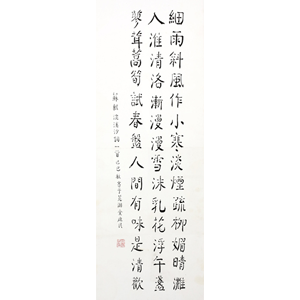 細雨斜風作小寒淡煙疏柳媚晴灘
入淮清洛漸漫漫雪沫乳花浮午盞
蓼茸蒿筍試春盤人間有味是清歡
蘇軾浣溪沙詞一首